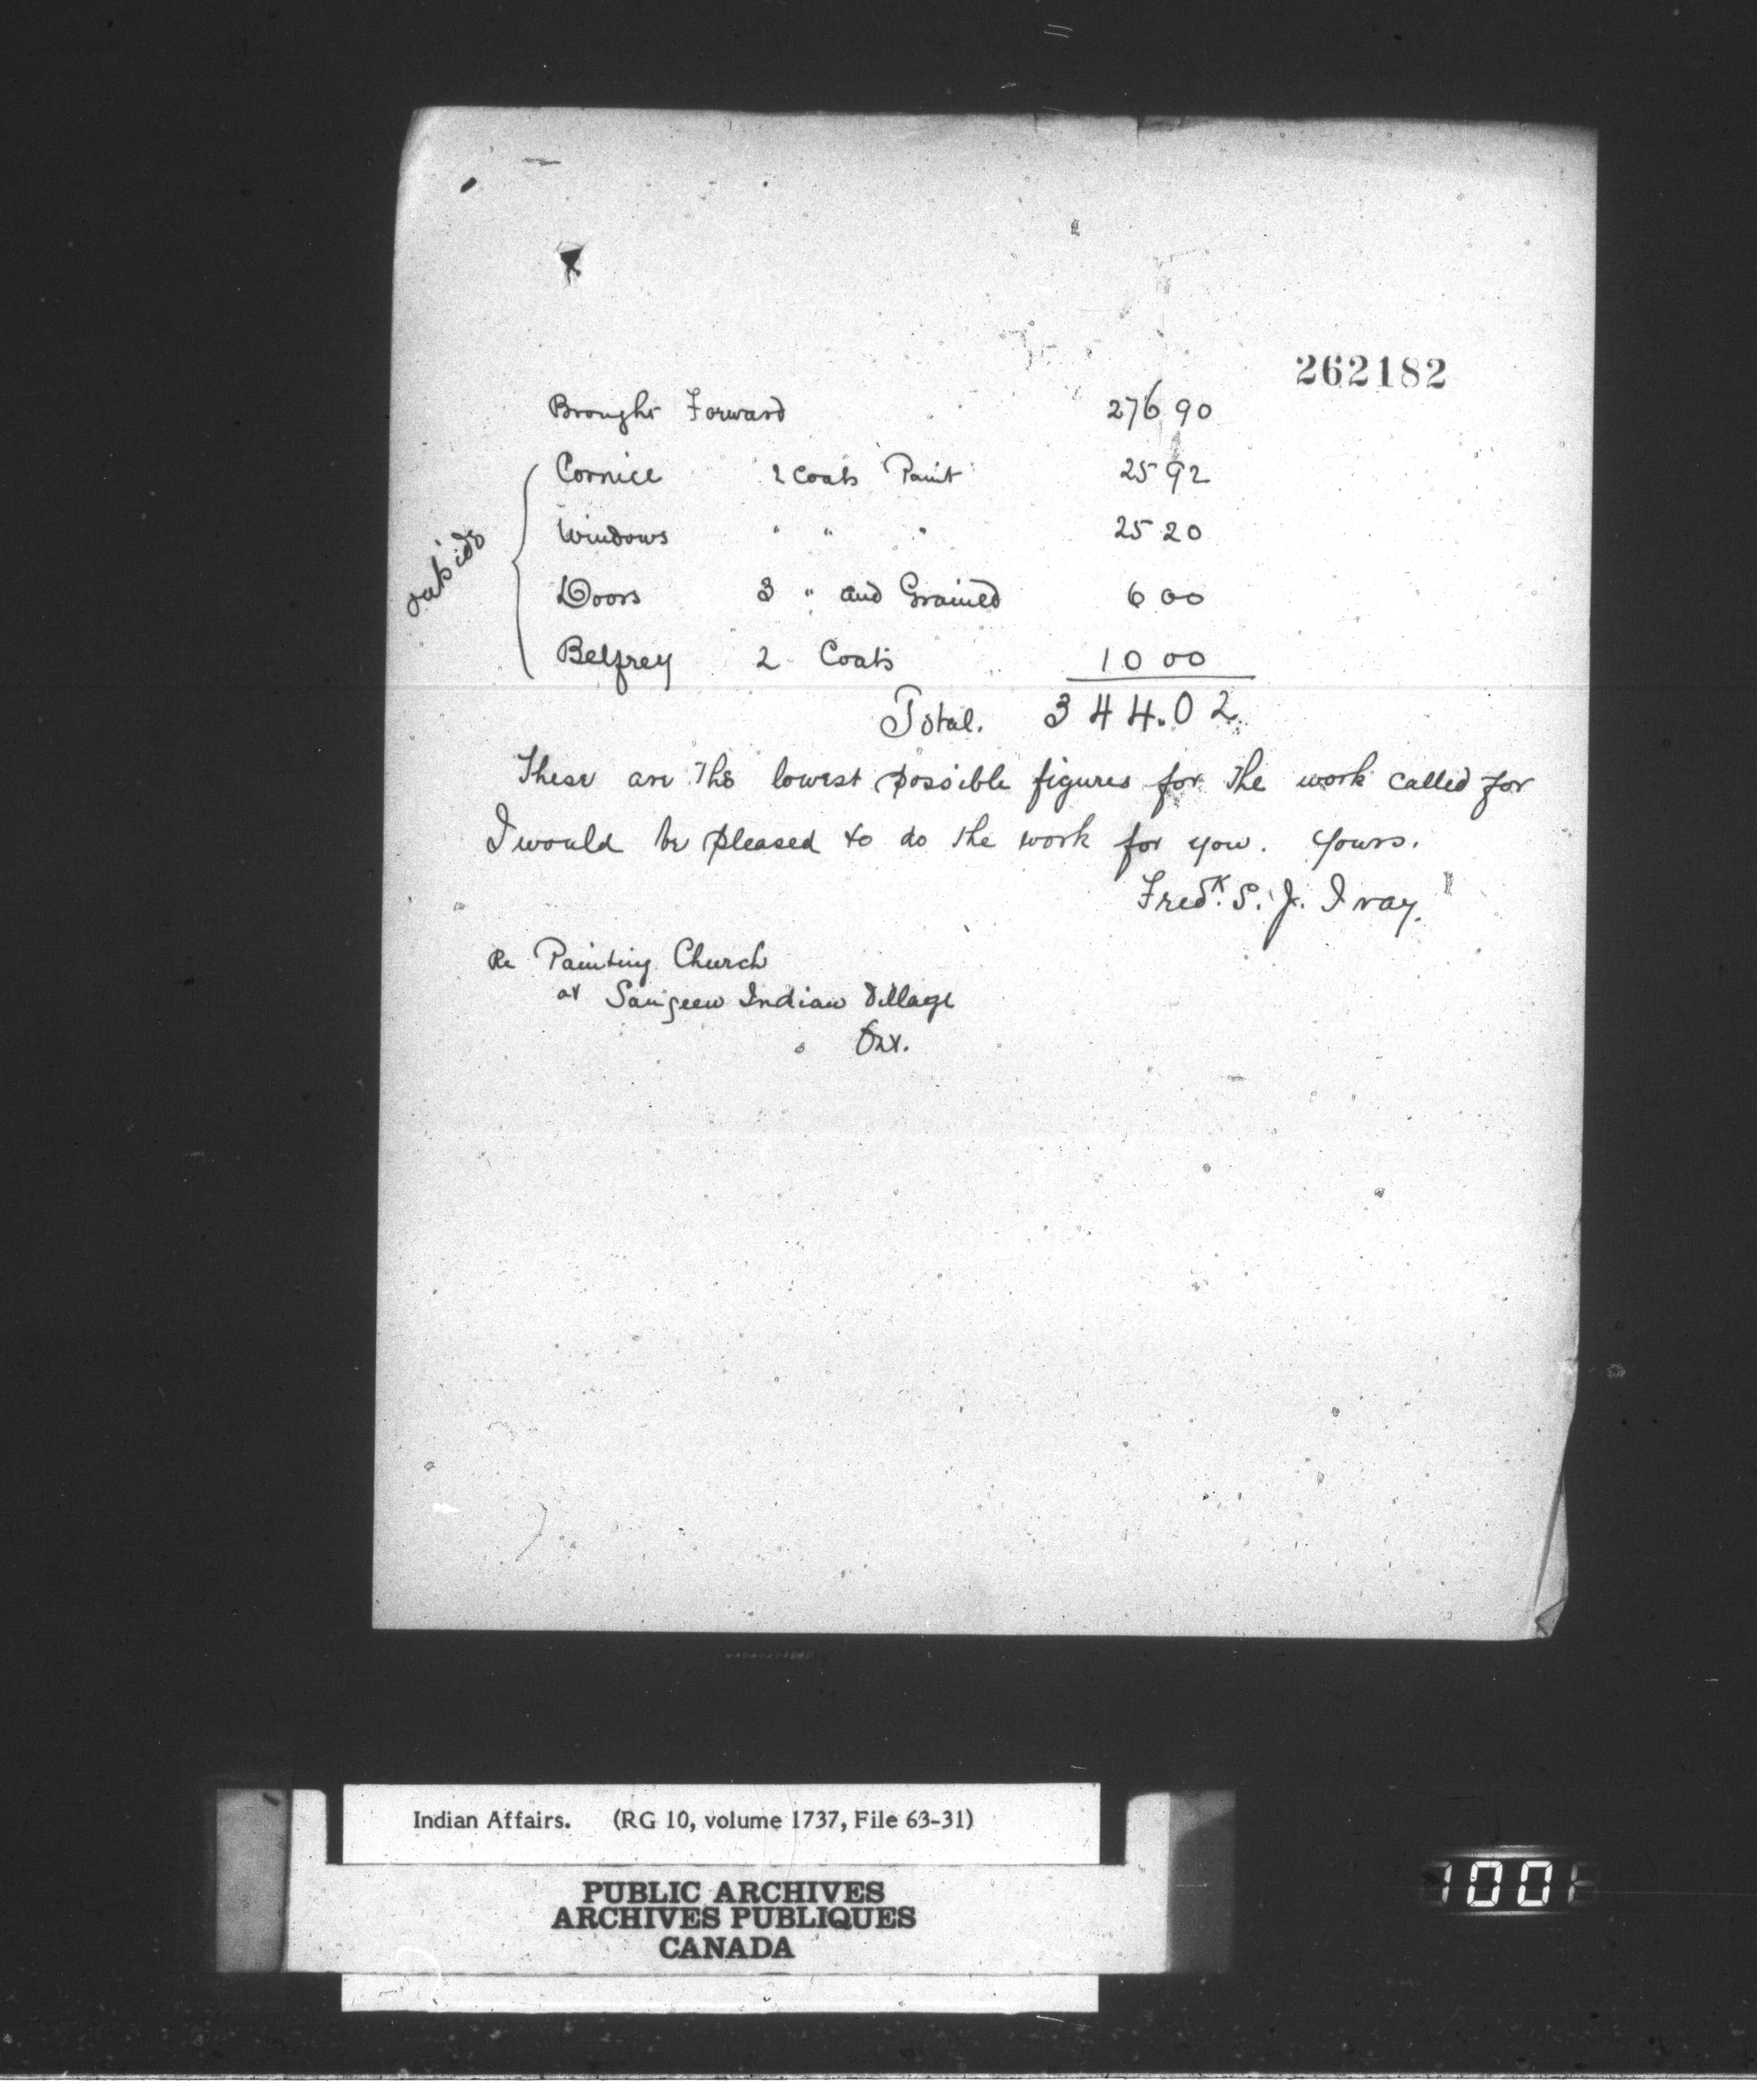 262182
Brought Forward 276 90
outside
Cornice 2 Coats Paint 25 92
Windows " " " 25 20
Doors 3 " and Grained 6 00
Belfrey 2 Coats 10 00
Total. 344.02
These are the lowest possible figures for the work called for
I would be pleased to do the work for you. Yours.
Fredk. S. J. Ivay.
Re Painting Church
at Saugeen Indian Village
Ont.
Indian Affairs. (RG 10, volume 1737, File 63-31)
PUBLIC ARCHIVES
ARCHIVES PUBLIQUES
CANADA